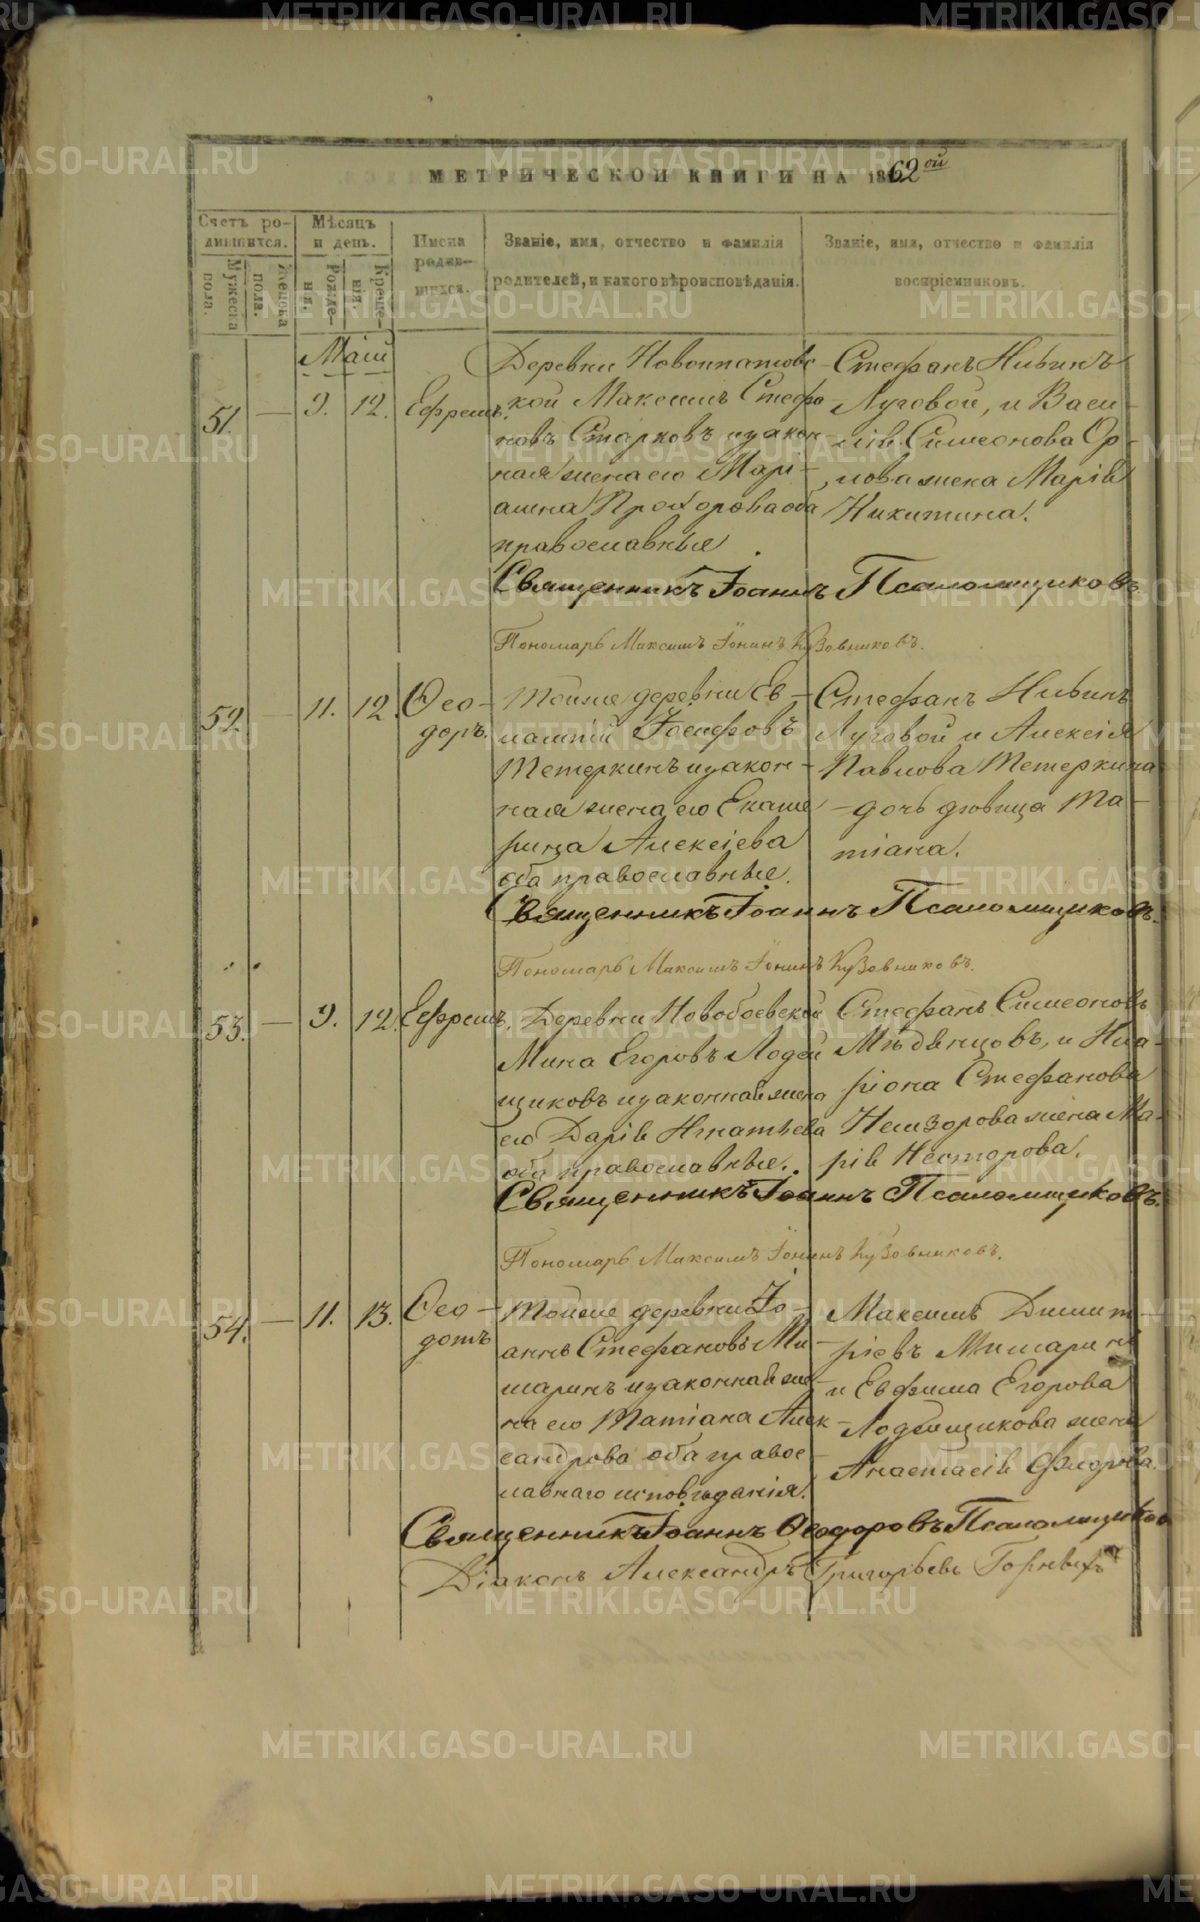 МЕТРИЧЕСКОЙ КНИГИ НА 1862ой
Счетъ ро-
дившихся.
Мужеска
пола.
Женска
пола.
Мѣсяцъ
и день.
Рожде-
нія.
Креще-
нія.
Имена
родив-
шихся.
Званіе, имя, отчество и фамилія
родителей, и какого вѣроисповѣданія.
Званіе, имя, отчество и фамилія
воспріемниковъ.
Маій
51. — 9. 12. Ефремъ.
Деревни Новоипатовс-
кой Максимъ Стефа-
новъ Старковъ и закон-
ная жена его Марі-
амна Прохорова оба
православныя
Стефанъ Нивинъ
Луговой, и Васи-
лія Симеонова Ор-
лова жена Марія
Никитина.
Священникъ Іоаннъ Псаломщиковъ
Пономарь Максимъ Іонинъ Кузовниковъ.
52. — 11. 12. Ѳео-
доръ.
Тойже деревни Ев-
лампій Іосифовъ
Тетеркинъ и закон-
ная жена его Екате
рина Алексіева
оба православные.
Стефанъ Нивинъ
Луговой и Алексія
Павлова Тетеркина
дочь дѣвица Та-
тіана.
Священникъ Іоаннъ Псаломщиковъ.
Пономарь Максимъ Іонинъ Кузовниковъ.
53. — 9. 12. Ефремъ.
Деревни Новобоевской
Мина Егоровъ Лодей
щиковъ и законная жена
его Дарія Игнатьева
оба православные.
Стефанъ Симеоновъ
Мѣдвнцовъ, и Ила-
ріона Стефанова
жена Ма-
рія Несторова.
Священникъ Іоаннъ Псаломщиковъ.
Пономарь Максимъ Іонинъ Кузовниковъ.
54. — 11. 13. Ѳео-
дотъ
Тойже деревни Іо-
аннъ Стефановъ Ми-
шаринъ и законная же-
на его Татіана Алек-
сандрова оба правос-
лавнаго исповѣданія.
Максимъ Димит-
ріевъ Мишаринъ
и Евфима Егорова
Лодейщикова жена
Анастасія Фёдорова.
Священникъ Іоаннъ Ѳеодоровъ Псаломщиковъ
Діаконъ Александръ Григорьевъ
METRIKI.GASO-URAL.RU